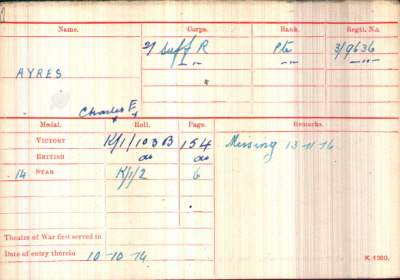 Name. Corps. Rank. Regtl. No.
2/ Suff R Pte 3/9636
AYRES " " " " " "
Charles E
Medal. Roll. Page. Remarks.
VICTORY K/1/103B 154 Missing 13-11-16
BRITISH do do
14 STAR K/1/2 6
Theatre of War first served in
Date of entry therein 10-10-14 K. 1380.